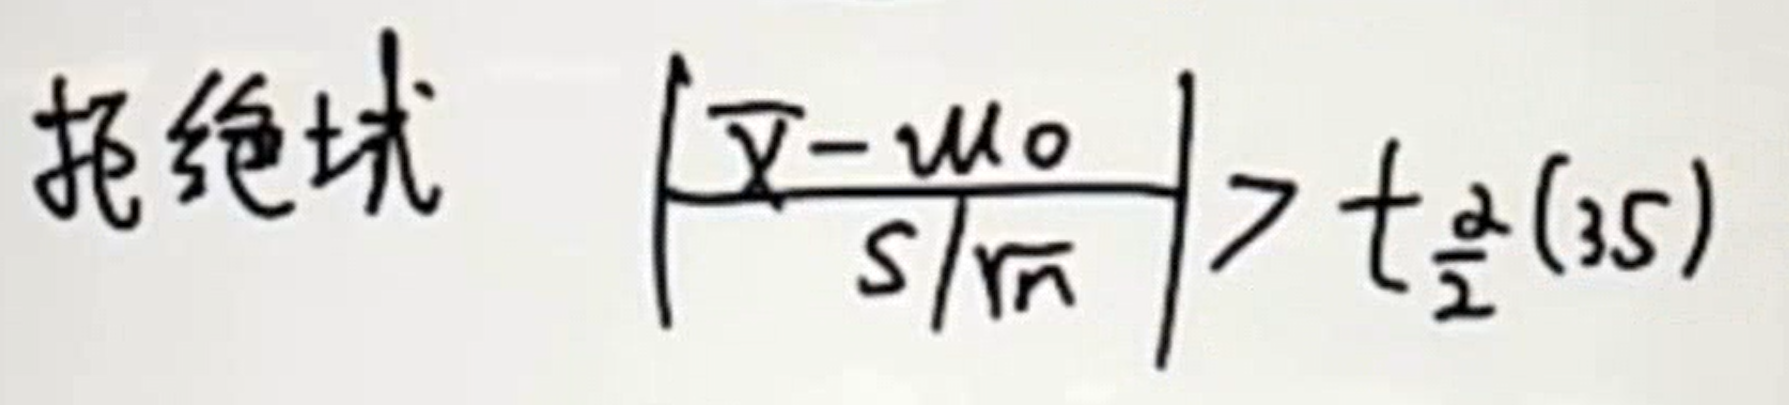 拒绝域 |(x̄-μ0)/(S/√n)| > t_{α/2}(35)